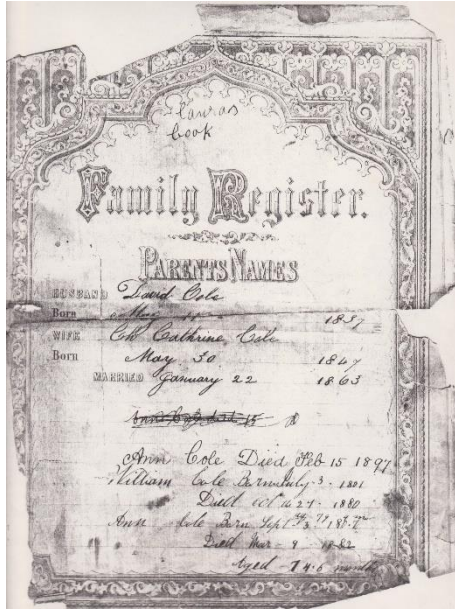 Lauras
book
Family Register.
PARENTS NAMES
HUSBAND David Cole
Born May 1837
WIFE Cathrine Cole
Born May 30 1847
MARRIED January 22 1863
Ann Cole Died Feb 15 1897
William Cole Born July 3 1801
Died 27 1880
Ann Cole Born Sept
Died Mar 9 1882
Aged months